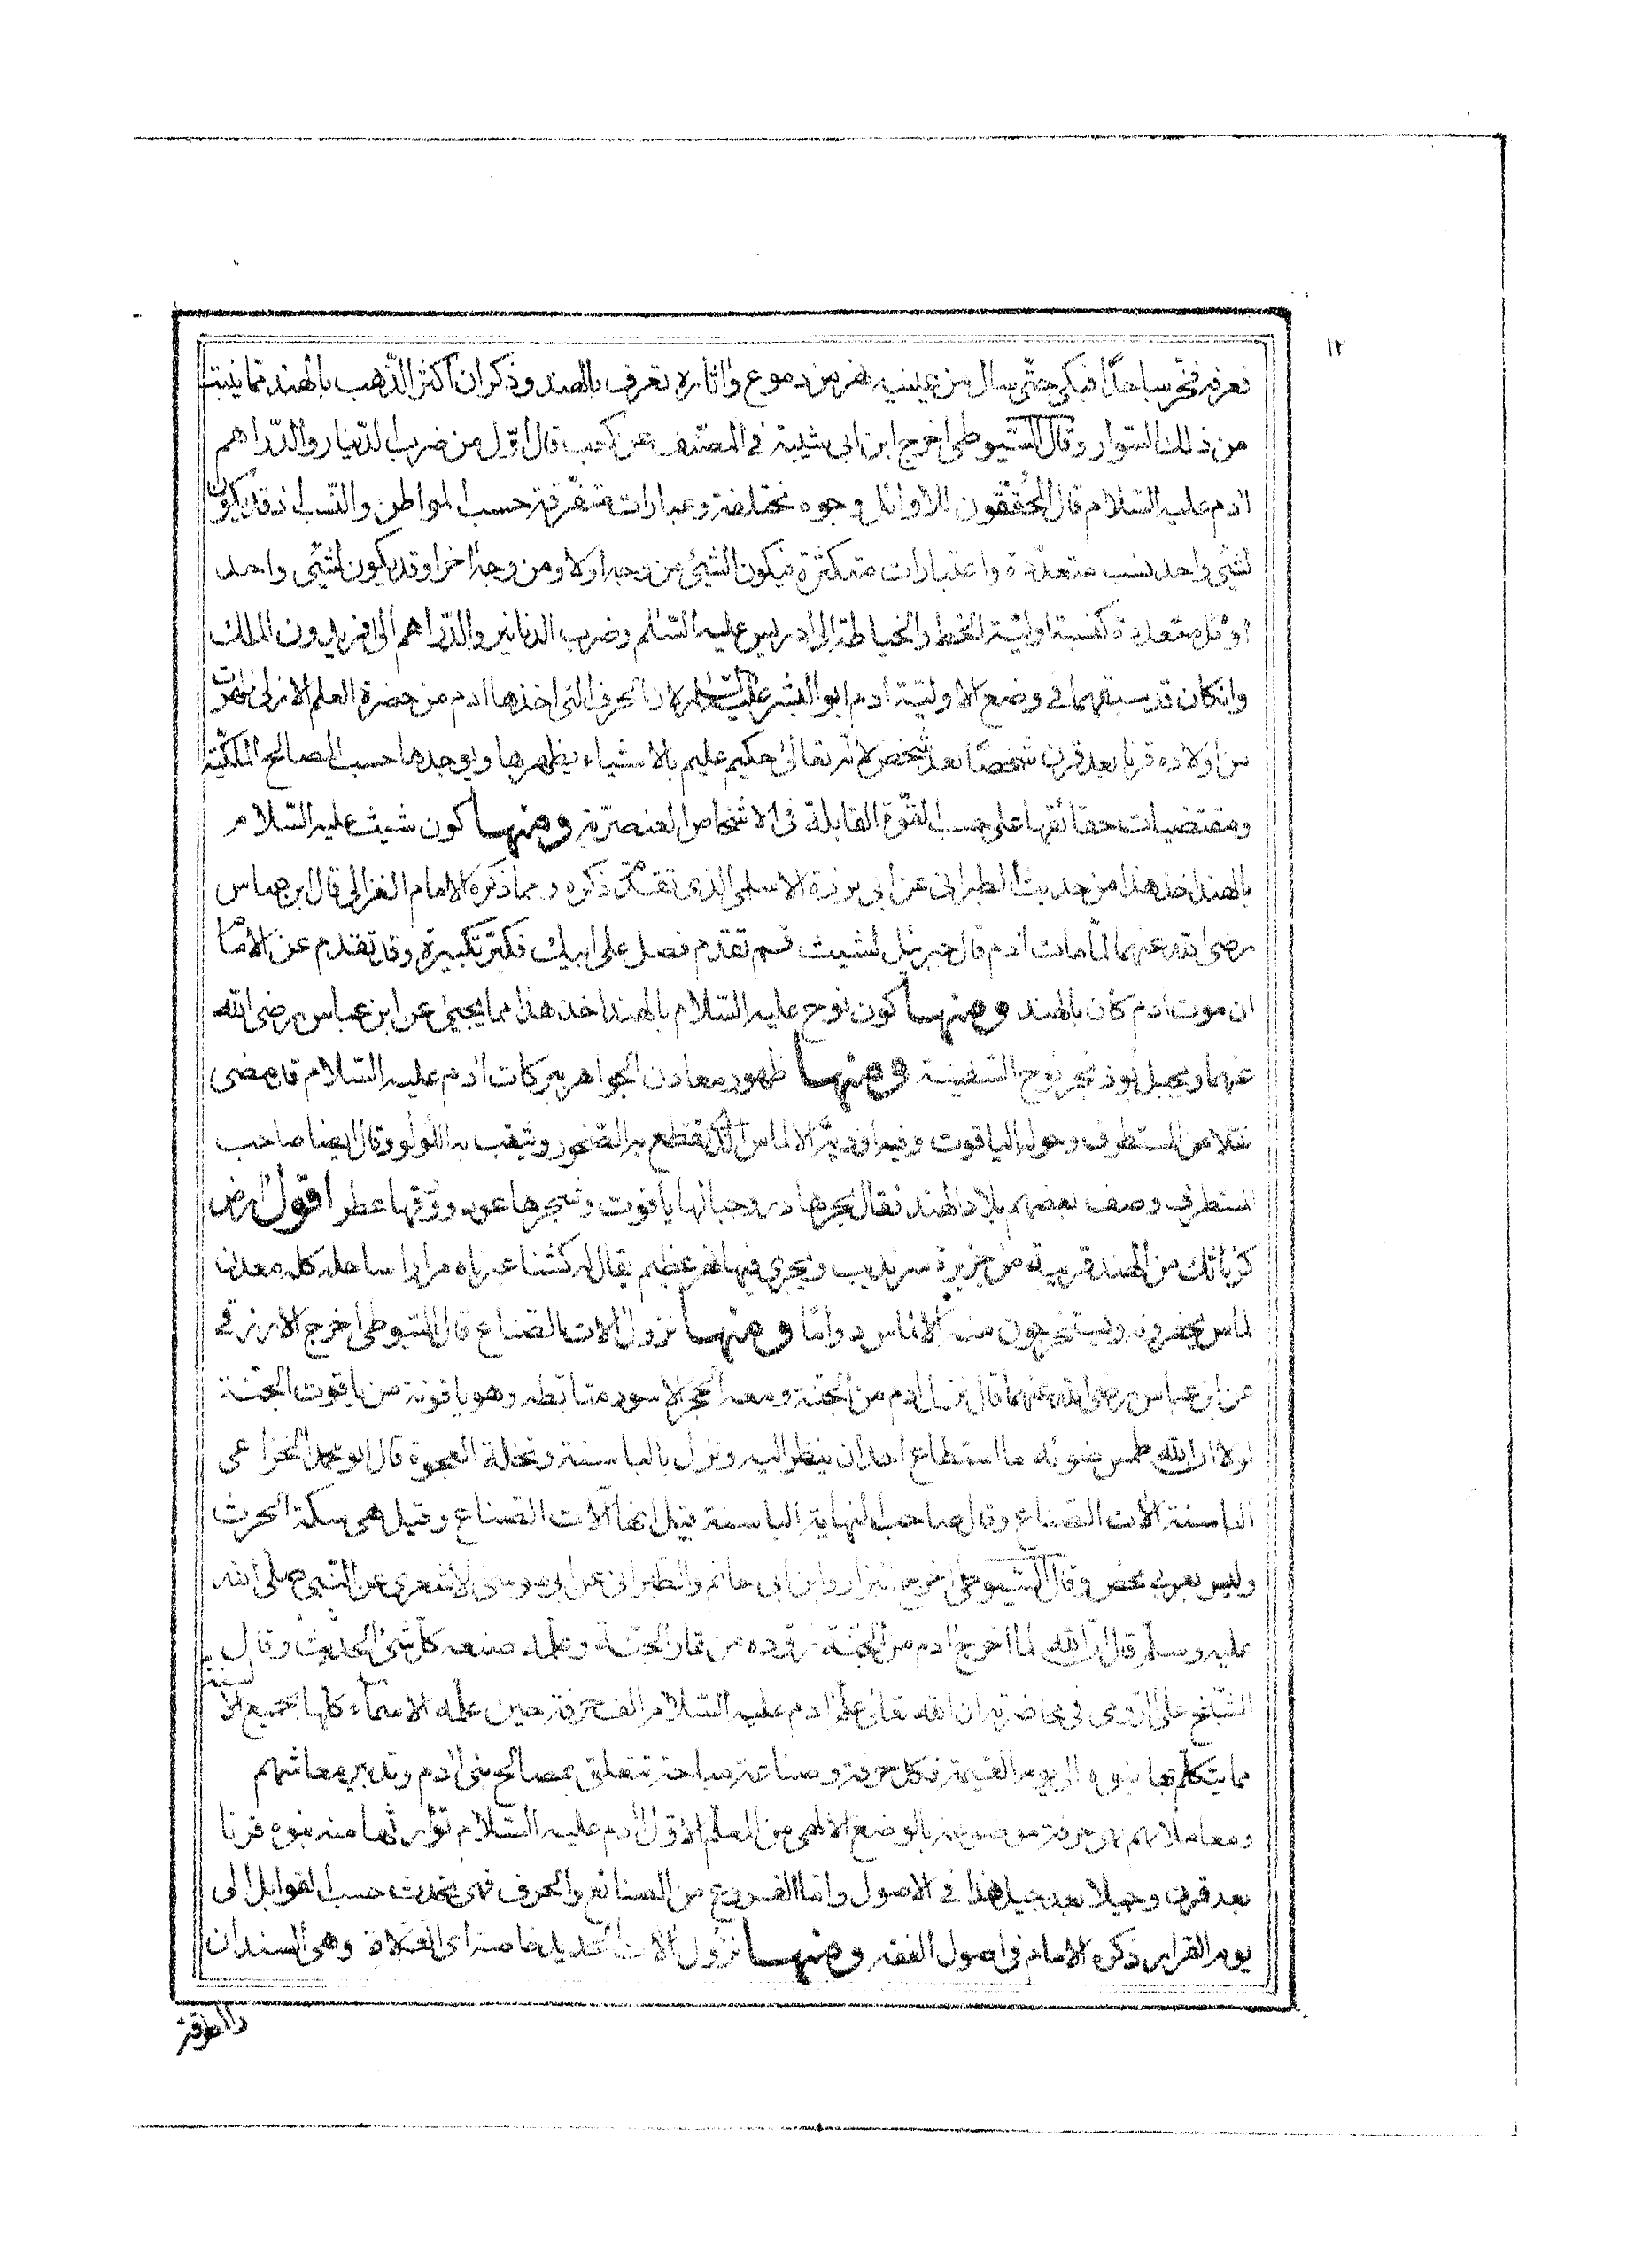 ١٢
فعرفه فخر ساجدًا فبكى حتّى سال من عينيه نهر من دموع واثاره تعرف بالهند وذكر ان اكثر الذّهب بالهند ممّا ينبت
من ذلك السّوار وقال السّيوطى اخرج ابن ابى شيبة فى المصنّف عن كعب قال اوّل من ضرب الدّينار والدّراهم
آدم عليه السّلام قال المُحقّقون للاوائل وجوه مختلفة وعبارات متفرّقة حسب المواطن والنّسب اذ قد يكون
لشئ واحد نسب متعدّدة واعتبارات متكثّرة فيكون الشّئ من وجه اولا ومن وجه اخرا وقد يكون لشئ واحد
اوائل متعددة كنسبة اوليّة الخط والخياطة الى ادريس عليه السّلم وضرب الدنانير والدّراهم الى افريدون الملك
وانكان قد سبقهما فى وضع الاوليّة ادم ابو البشر عليه السّلام لان الحرف التى اخذها ادم من حضرة العلم الازلى ظهرت
من اولاده قرنا بعد قرن شخصًا بعد شخص لانّه تعالى حكيم عليم بالاشياء يظهرها ويوجدها حسب المصالح الملكيّة
ومقتضيات حقائقها على حسب القوّة القابلة فى الاشخاص العنصريّة ومنها كون شيث عليه السّلام
بالهند اخذ هذا من حديث الطبرانى عن ابى برزة الاسلمى الذى تقدّم ذكره ومما ذكره الامام الغزالى قال ابن عباس
رضى الله عنهما لمّا مات آدم قال جبرئيل لشيث قم تقدّم فصل على ابيك فكبّر تكبيرة وقد تقدم عن الامام
ان موت ادم كان بالهند ومنها كون نوح عليه السّلام بالهند اخذ هذا مما يجئ عن ابن عباس رضى الله
عنهما وبجبل نوذ نجر نوح السّفينة ومنها ظهور معادن الجواهر ببركات آدم عليه السّلام قد مضى
نقلا من المستطرف وحوله الياقوت وفيه اوديته الالماس الّذى يقطع به الصّخور ويثقب به اللّولو وقال ايضا صاحب
المستطرف وصف بعضهم بلاد الهند فقال بحرها در وجبالها ياقوت وشجرها عود وورقها عطر اقول ارض
من الهند قريبة من جزيرة سرنديب ويجرى فيها نهر عظيم يقال له كشنا ساحله كله معدن
الماس يحفرونه ويستخرجون منه الالماس دوامًا ومنها نزول الات الصّناع قال السّيوطى اخرج الازرقى
عن ابن عباس رضى الله عنهما قال نزل آدم من الجنّة ومعه الحجر الاسود متابطه وهو ياقوتة من ياقوت الجنّة
لولا ان الله طمس ضوئه ما استطاع احد ان ينظر اليه ونزل بالباسنة ونخلة العجوة قال ابو محمد الخزاعى
الباسنة الات الصّناع وقال صاحب النهاية الباسنة قيل انها آلات الصّناع وقيل هى سكة الحرث
وليس بعربى محض وقال السّيوطى اخرج البزار وابن ابى حاتم والطبرانى عن ابى موسى الاشعرى عن النّبى صلّى الله
عليه وسلّم قال انّ الله لما اخرج ادم من الجنّة زوّده من ثمار الجنّة وعلّمه صنعه كلّ شئ الحديث وقال
الشّيخ على الرّومى فى محاضرته ان الله تعالى علّم ادم عليه السّلام الف حرفة حين علّمه الاسماء كلّها بجميع الالسنة
مما يتكلّم بها بنوه الى يوم القيمة فكل حرفة وصناعة مباحة تتعلق بمصالح بنى آدم وتدبير معاشهم
ومعاملاتهم فهى حرفة موضوعة بالوضع الالهى من المعلّم الاوّل ادم عليه السّلام توارثها منه بنوه قرنا
بعد قرن وجيلا بعد جيل هذا فى الاصول وامّا الفروع من الصنائع والحرف فهى تحدث حسب القوابل الى
يوم القرار ذكره الامام فى اصول الفقه ومنها نزول الات الحديد خاصة اى العلاة وهى السندان
والمطرقة